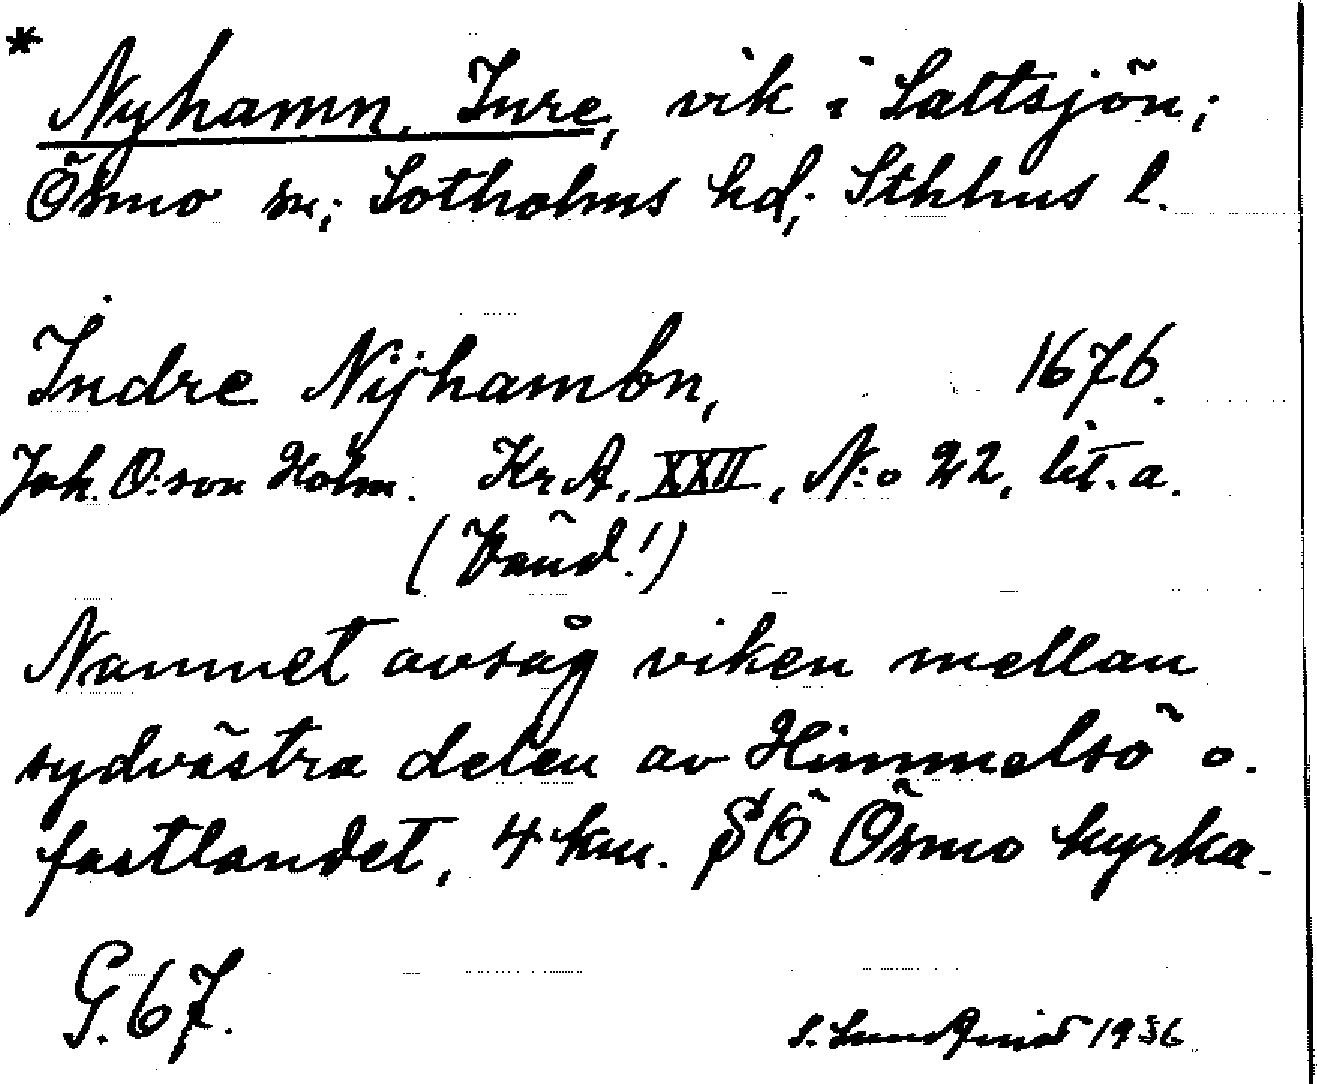 * Nyhamn, Inre, vik i Saltsjön;
Ösmo sn; Sotholms hd; Sthlms l.
Indre Nijhambn, 1676.
Joh. O:son Holm. Kr A, XXII, N:o 22, lit. a.
(Vänd!)
Namnet avsåg viken mellan
sydvästra delen av Himmelsö o.
fastlandet, 4 km. SÖ Ösmo kyrka.
G. 67.
S. Lundquist 1936